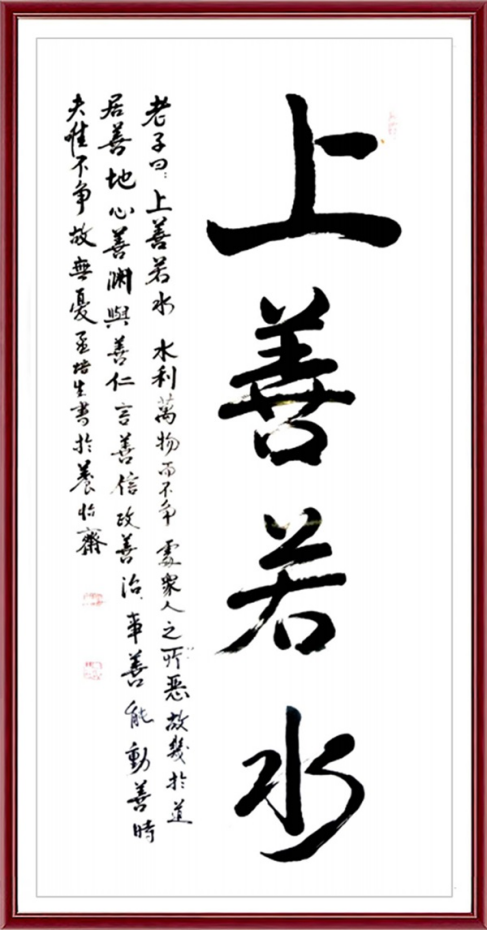 上善若水
老子曰：上善若水水利萬物而不争處衆人之所惡故幾於道
居善地心善渊與善仁言善信政善治事善能動善時
夫惟不争故無憂孟培生書於養怡齋